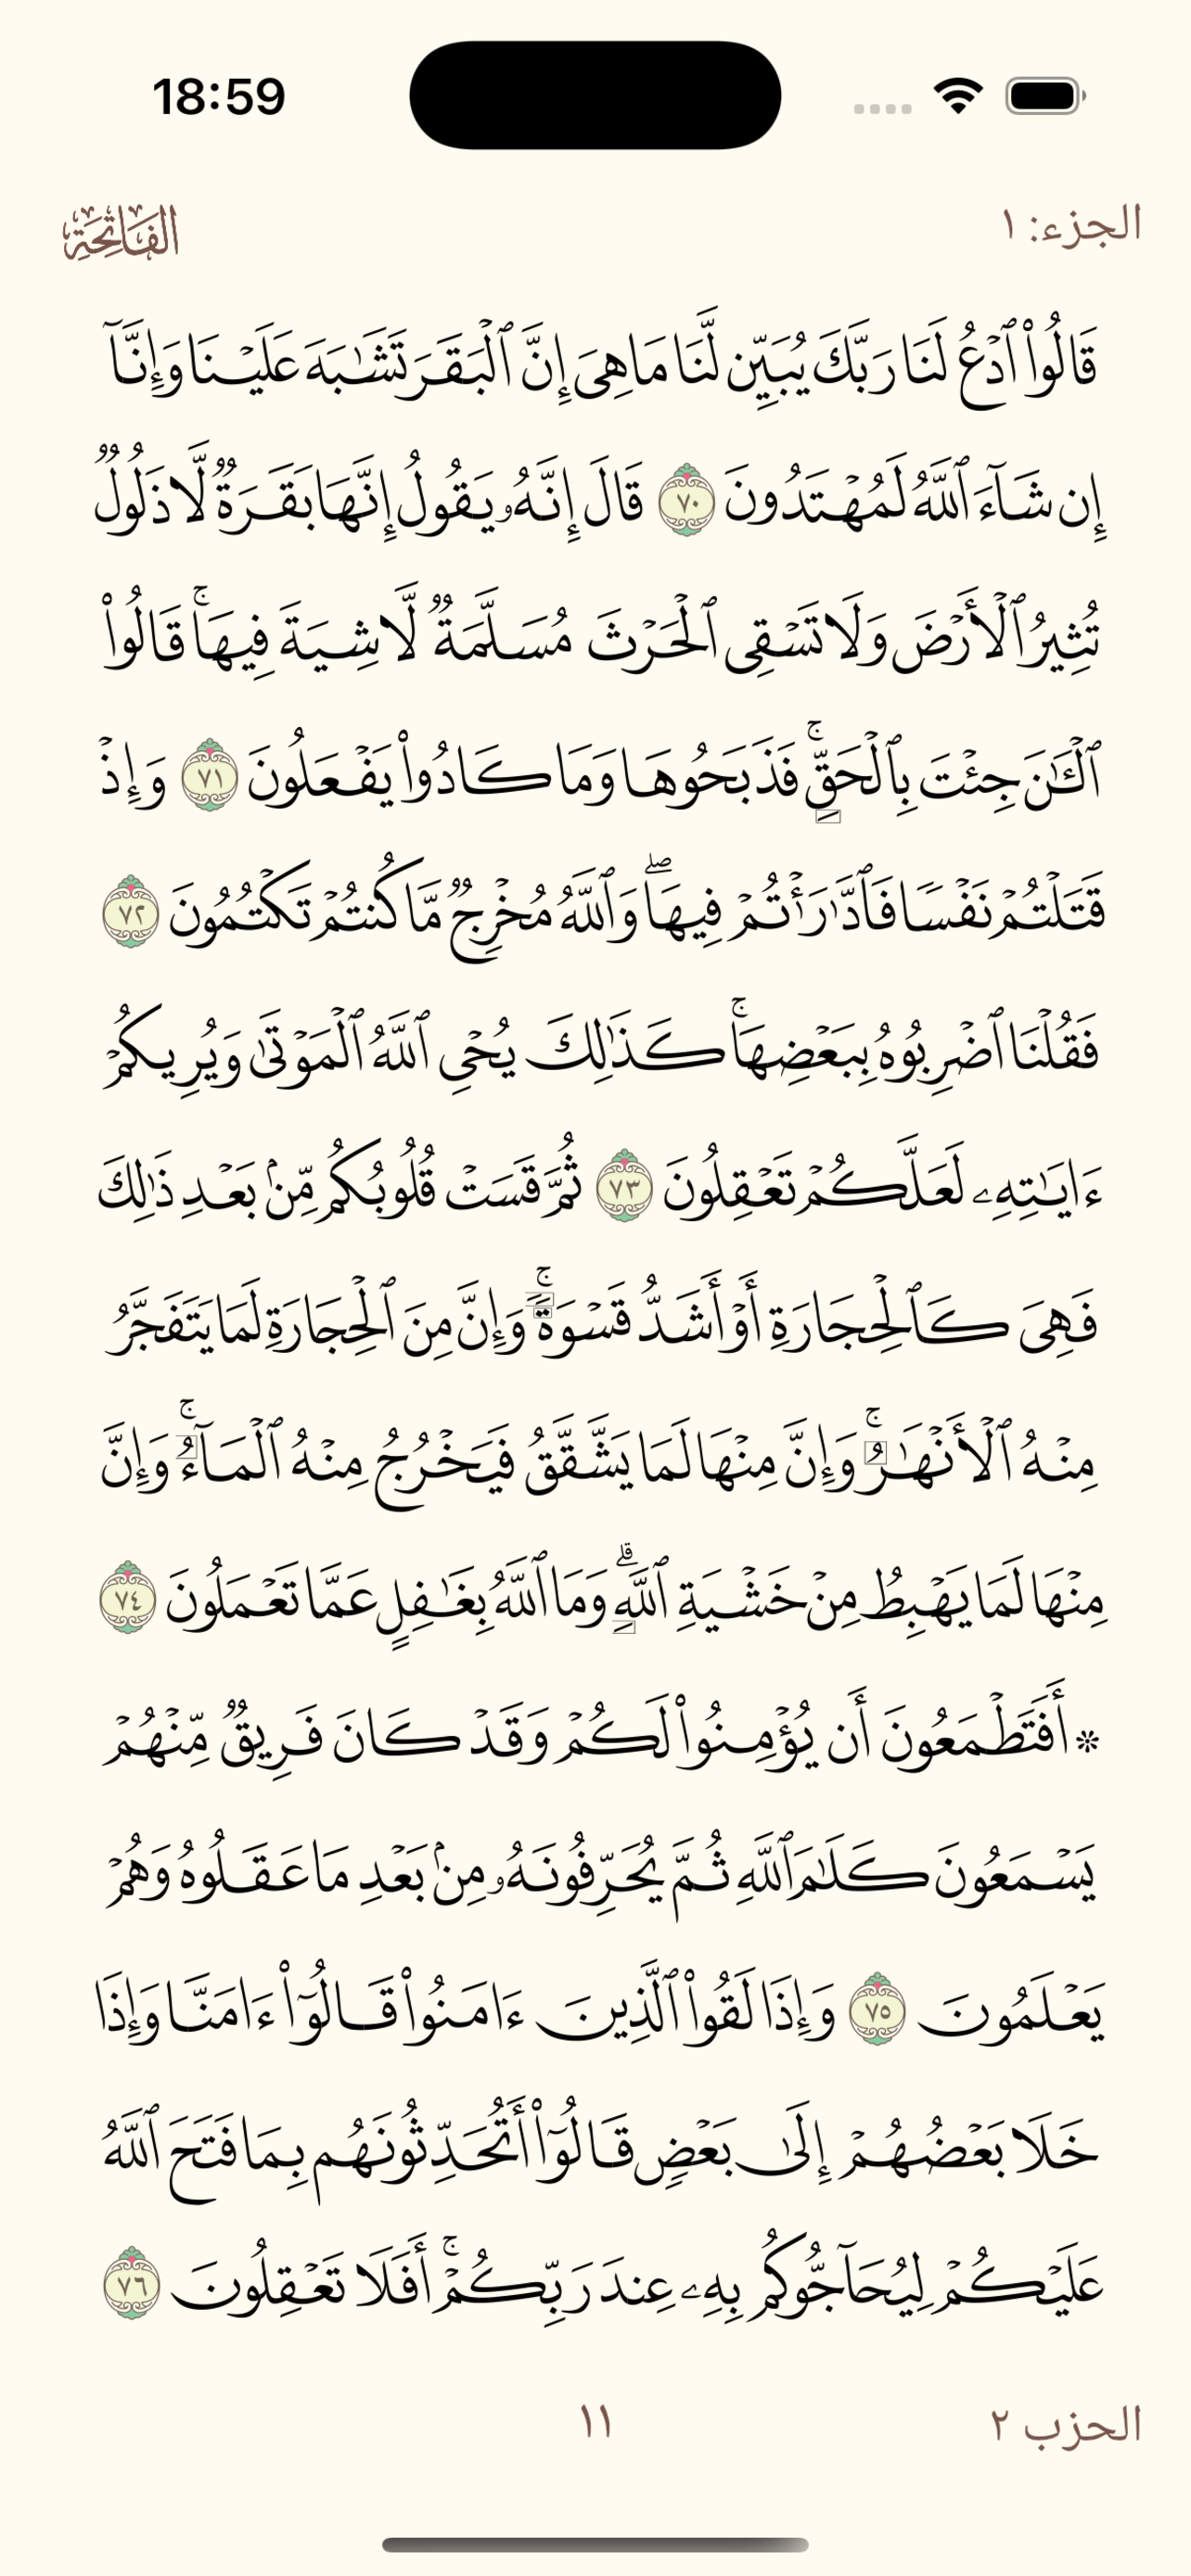 18:59
الجزء: ١
الفَاتِحَة
قَالُوا۟ ٱدْعُ لَنَا رَبَّكَ يُبَيِّن لَّنَا مَا هِىَ إِنَّ ٱلْبَقَرَ تَشَـٰبَهَ عَلَيْنَا وَإِنَّآ
إِن شَآءَ ٱللَّهُ لَمُهْتَدُونَ ٧٠ قَالَ إِنَّهُۥ يَقُولُ إِنَّهَا بَقَرَةٌ لَّا ذَلُولٌ
تُثِيرُ ٱلْأَرْضَ وَلَا تَسْقِى ٱلْحَرْثَ مُسَلَّمَةٌ لَّا شِيَةَ فِيهَا ۚ قَالُوا۟
ٱلْـَٔـٰنَ جِئْتَ بِٱلْحَقِّ ۚ فَذَبَحُوهَا وَمَا كَادُوا۟ يَفْعَلُونَ ٧١ وَإِذْ
قَتَلْتُمْ نَفْسًا فَٱدَّٰرَْٰٔتُمْ فِيهَا ۖ وَٱللَّهُ مُخْرِجٌ مَّا كُنتُمْ تَكْتُمُونَ ٧٢
فَقُلْنَا ٱضْرِبُوهُ بِبَعْضِهَا ۚ كَذَٰلِكَ يُحْىِ ٱللَّهُ ٱلْمَوْتَىٰ وَيُرِيكُمْ
ءَايَـٰتِهِۦ لَعَلَّكُمْ تَعْقِلُونَ ٧٣ ثُمَّ قَسَتْ قُلُوبُكُم مِّنۢ بَعْدِ ذَٰلِكَ
فَهِىَ كَٱلْحِجَارَةِ أَوْ أَشَدُّ قَسْوَةً ۚ وَإِنَّ مِنَ ٱلْحِجَارَةِ لَمَا يَتَفَجَّرُ
مِنْهُ ٱلْأَنْهَـٰرُ ۚ وَإِنَّ مِنْهَا لَمَا يَشَّقَّقُ فَيَخْرُجُ مِنْهُ ٱلْمَآءُ ۚ وَإِنَّ
مِنْهَا لَمَا يَهْبِطُ مِنْ خَشْيَةِ ٱللَّهِ ۗ وَمَا ٱللَّهُ بِغَـٰفِلٍ عَمَّا تَعْمَلُونَ ٧٤
۞ أَفَتَطْمَعُونَ أَن يُؤْمِنُوا۟ لَكُمْ وَقَدْ كَانَ فَرِيقٌ مِّنْهُمْ
يَسْمَعُونَ كَلَـٰمَ ٱللَّهِ ثُمَّ يُحَرِّفُونَهُۥ مِنۢ بَعْدِ مَا عَقَلُوهُ وَهُمْ
يَعْلَمُونَ ٧٥ وَإِذَا لَقُوا۟ ٱلَّذِينَ ءَامَنُوا۟ قَالُوٓا۟ ءَامَنَّا وَإِذَا
خَلَا بَعْضُهُمْ إِلَىٰ بَعْضٍ قَالُوٓا۟ أَتُحَدِّثُونَهُم بِمَا فَتَحَ ٱللَّهُ
عَلَيْكُمْ لِيُحَآجُّوكُم بِهِۦ عِندَ رَبِّكُمْ ۚ أَفَلَا تَعْقِلُونَ ٧٦
الحزب ٢
١١